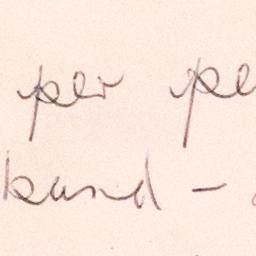 per pe
band –